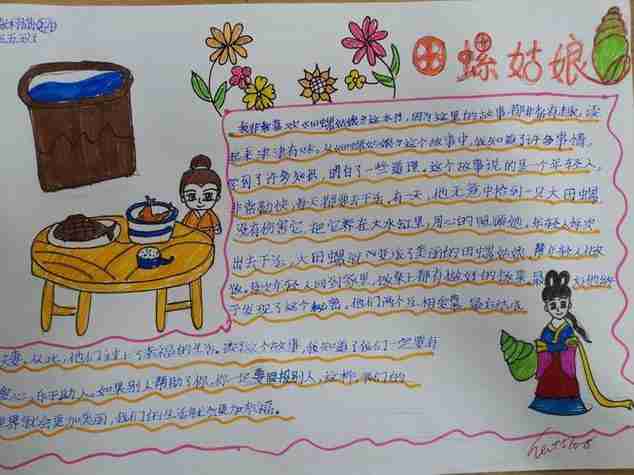 田螺姑娘
我非常喜欢《田螺姑娘》这本书,因为这里的故事,都非常有趣,读
起来津津有味。从《田螺姑娘》这个故事中,我知道了许多事情,
学到了许多知识,明白了一些道理。这个故事说的是一个年轻人,
非常勤快,每天都要去干活。有一天,他无意中捡到一只大田螺
没有伤害它,把它养在大水缸里,用心的照顾她,年轻人每次
出去干活,大田螺就 变成了美丽的田螺姑娘,帮年轻人做
饭。每次年轻人回到家里,饭桌上都有做好的饭菜。最
于发现了这个秘密。他们两个互相 爱,最后
夫妻,从此,他们过上了幸福的生活。读了这个故事,我知道了我们一定要有
心,乐于助人。如果别人帮助了你,你一定要回报别人,这样,我们的
世界就会更加美丽,我们的生活就会更加幸福。